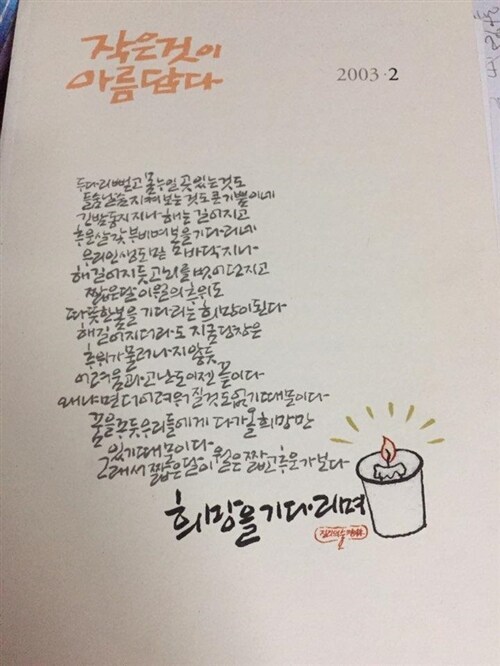 작은것이
아름답다
2003·2
두다리뻗고 몸누일 곳있는것도
들숨날숨지켜보는것도큰기쁨이네
긴밤동지지나해는길어지고
추운살갗부비며봄을기다리네
우리인생도맨 바닥지나
해길어지듯고뇌를벗어던지고
짧은달이월의추위도
따뜻한봄을기다리는희망이된다
해길어지더라도지금당장은
추위가물러나지않듯
어려움과고난도이젠끝이다
왜냐면더어려워질것도없기때문이다
꿈을꾸듯우리들에게다가올희망만
있기때문이다
그래서짧은달이월은짧고추운가보다
희망을기다리며